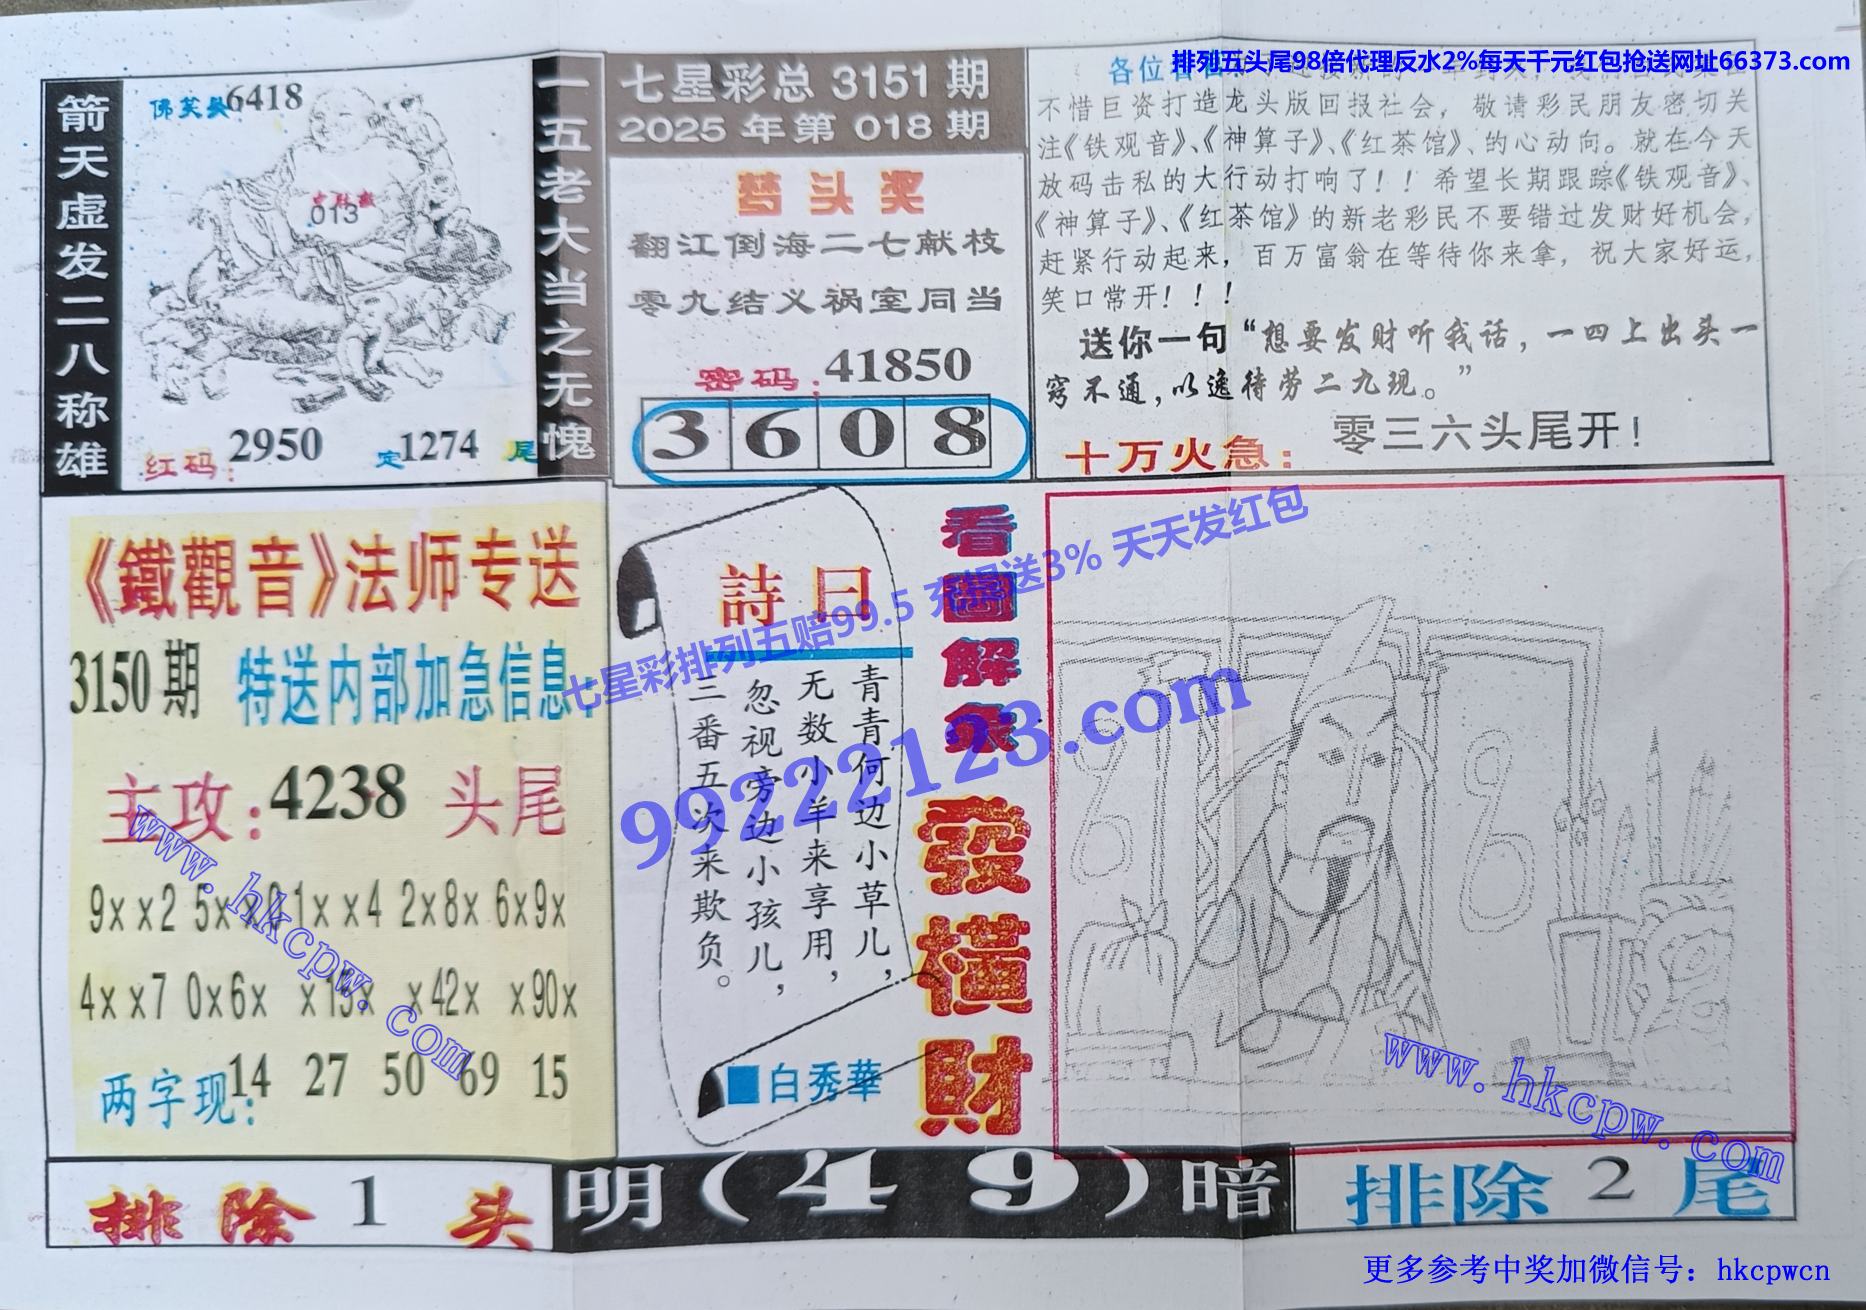 排列五头尾98倍代理反水2%每天千元红包抢送网址66373.com
箭天虚发二八称雄
佛笑头6418
013
红码：2950
定1274尾
一五老大当之无愧
七星彩总 3151 期
2025 年第 018 期
梦头奖
翻江倒海二七献枝
零九结义祸室同当
密码：41850
3 6 0 8
各位
不惜巨资打造龙头版回报社会，敬请彩民朋友密切关
注《铁观音》、《神算子》、《红茶馆》、的心动向。就在今天
放码击私的大行动打响了！！希望长期跟踪《铁观音》、
《神算子》、《红茶馆》的新老彩民不要错过发财好机会，
赶紧行动起来，百万富翁在等待你来拿，祝大家好运，
笑口常开！！！
送你一句“想要发财听我话，一四上出头一
窍不通，以逸待劳二九现。”
十万火急：零三六头尾开！
《鐵觀音》法师专送
3150期 特送内部加急信息：
主攻：4238 头尾
9xx2 5xx0 1xx4 2x8x 6x9x
4xx7 0x6x x15x x42x x90x
两字现：14 27 50 69 15
詩曰
青青何边小草儿，
无数小羊来享用，
忽视旁边小孩儿，
三番五次来欺负。
■白秀華
看圖解象
發橫財
七星彩排列五赔99.5 充提送3% 天天发红包
99222123.com
www.hkcpw.com
www.hkcpw.com
排除 1 头
明(49)暗
排除 2 尾
更多参考中奖加微信号：hkcpwcn